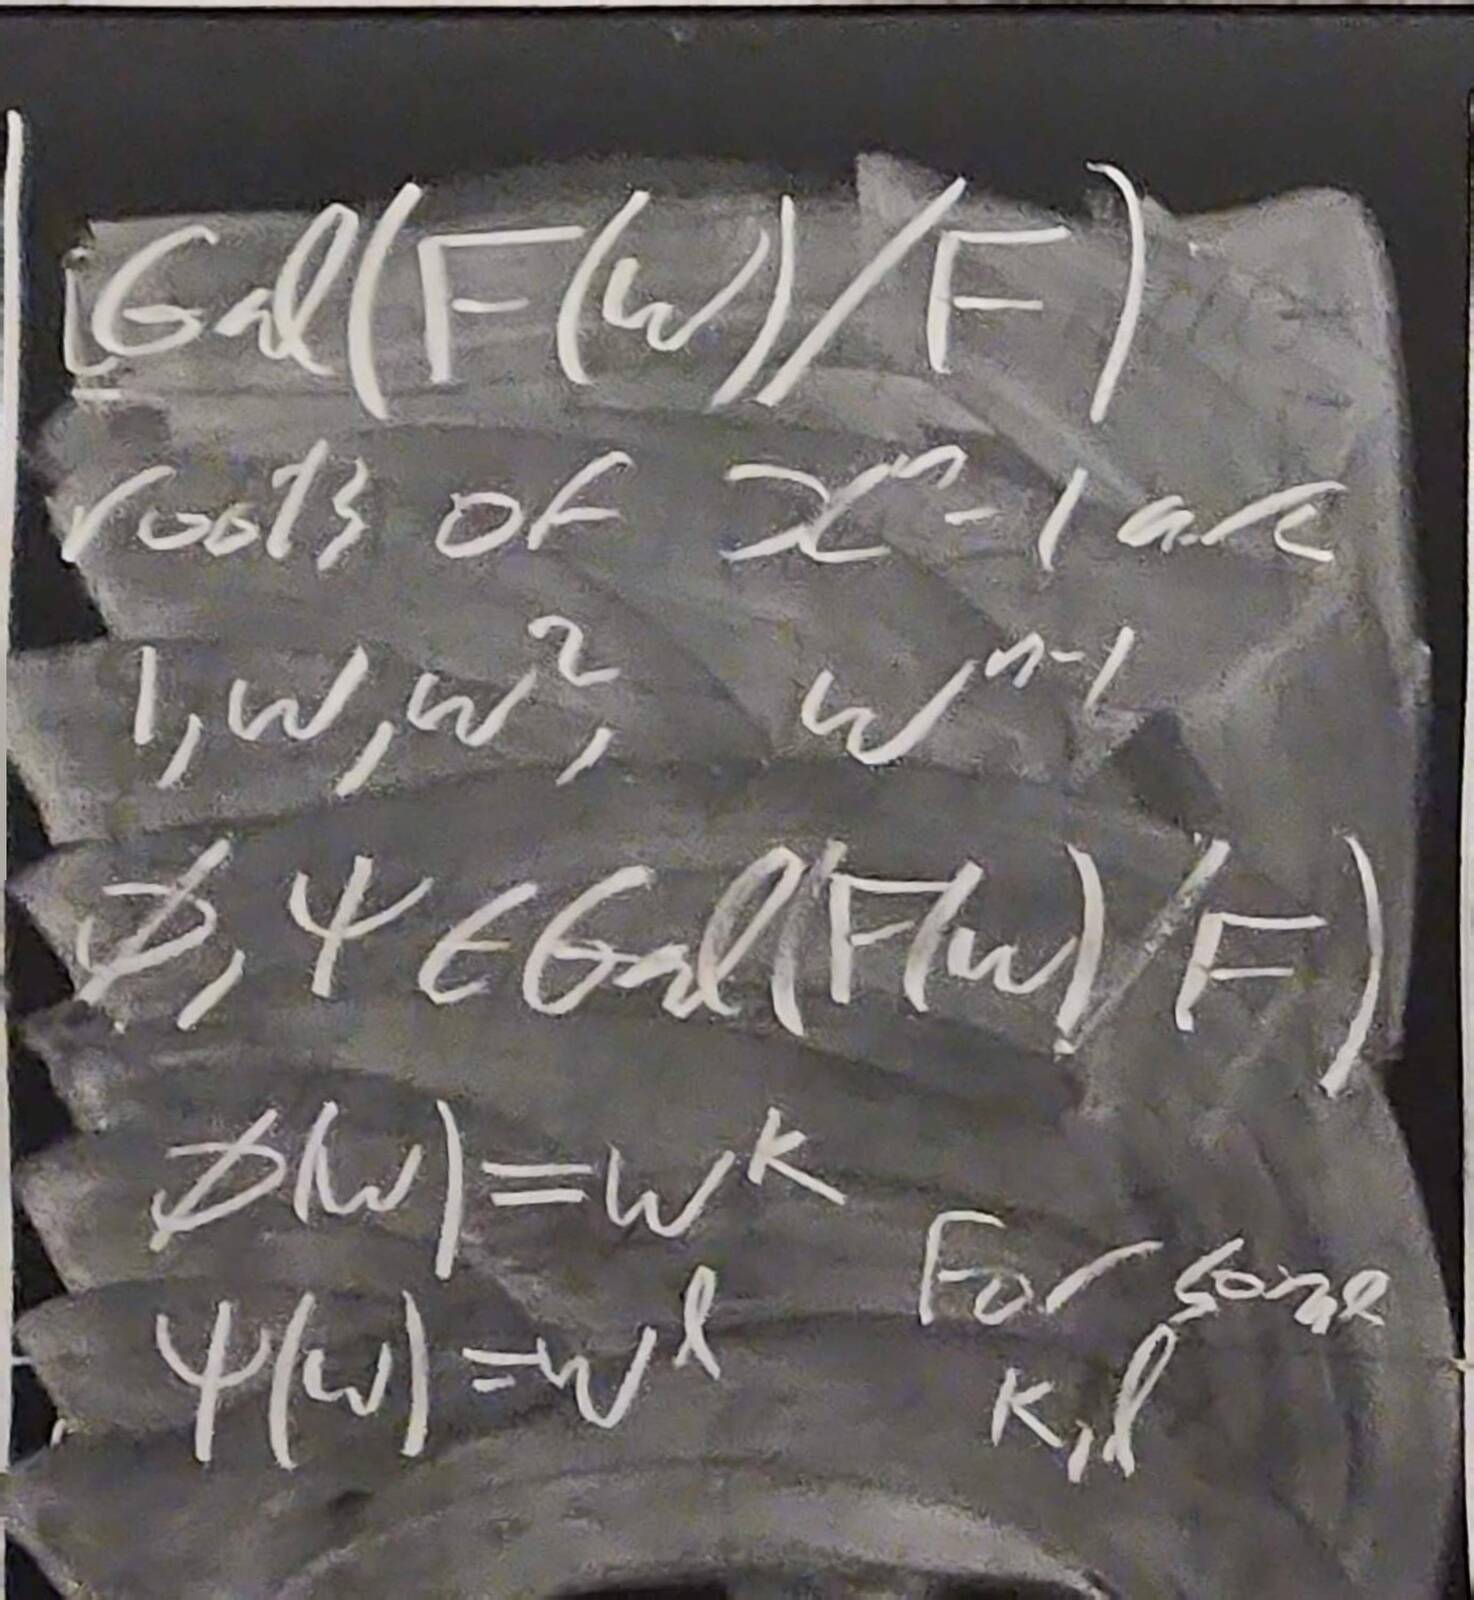 Gal(F(w)/F)
roots of x^n - 1 are
1, w, w^2, w^{n-1}
ϕ, ψ ∈ Gal(F(w)/F)
ϕ(w) = w^k
ψ(w) = w^l
For some
k, l